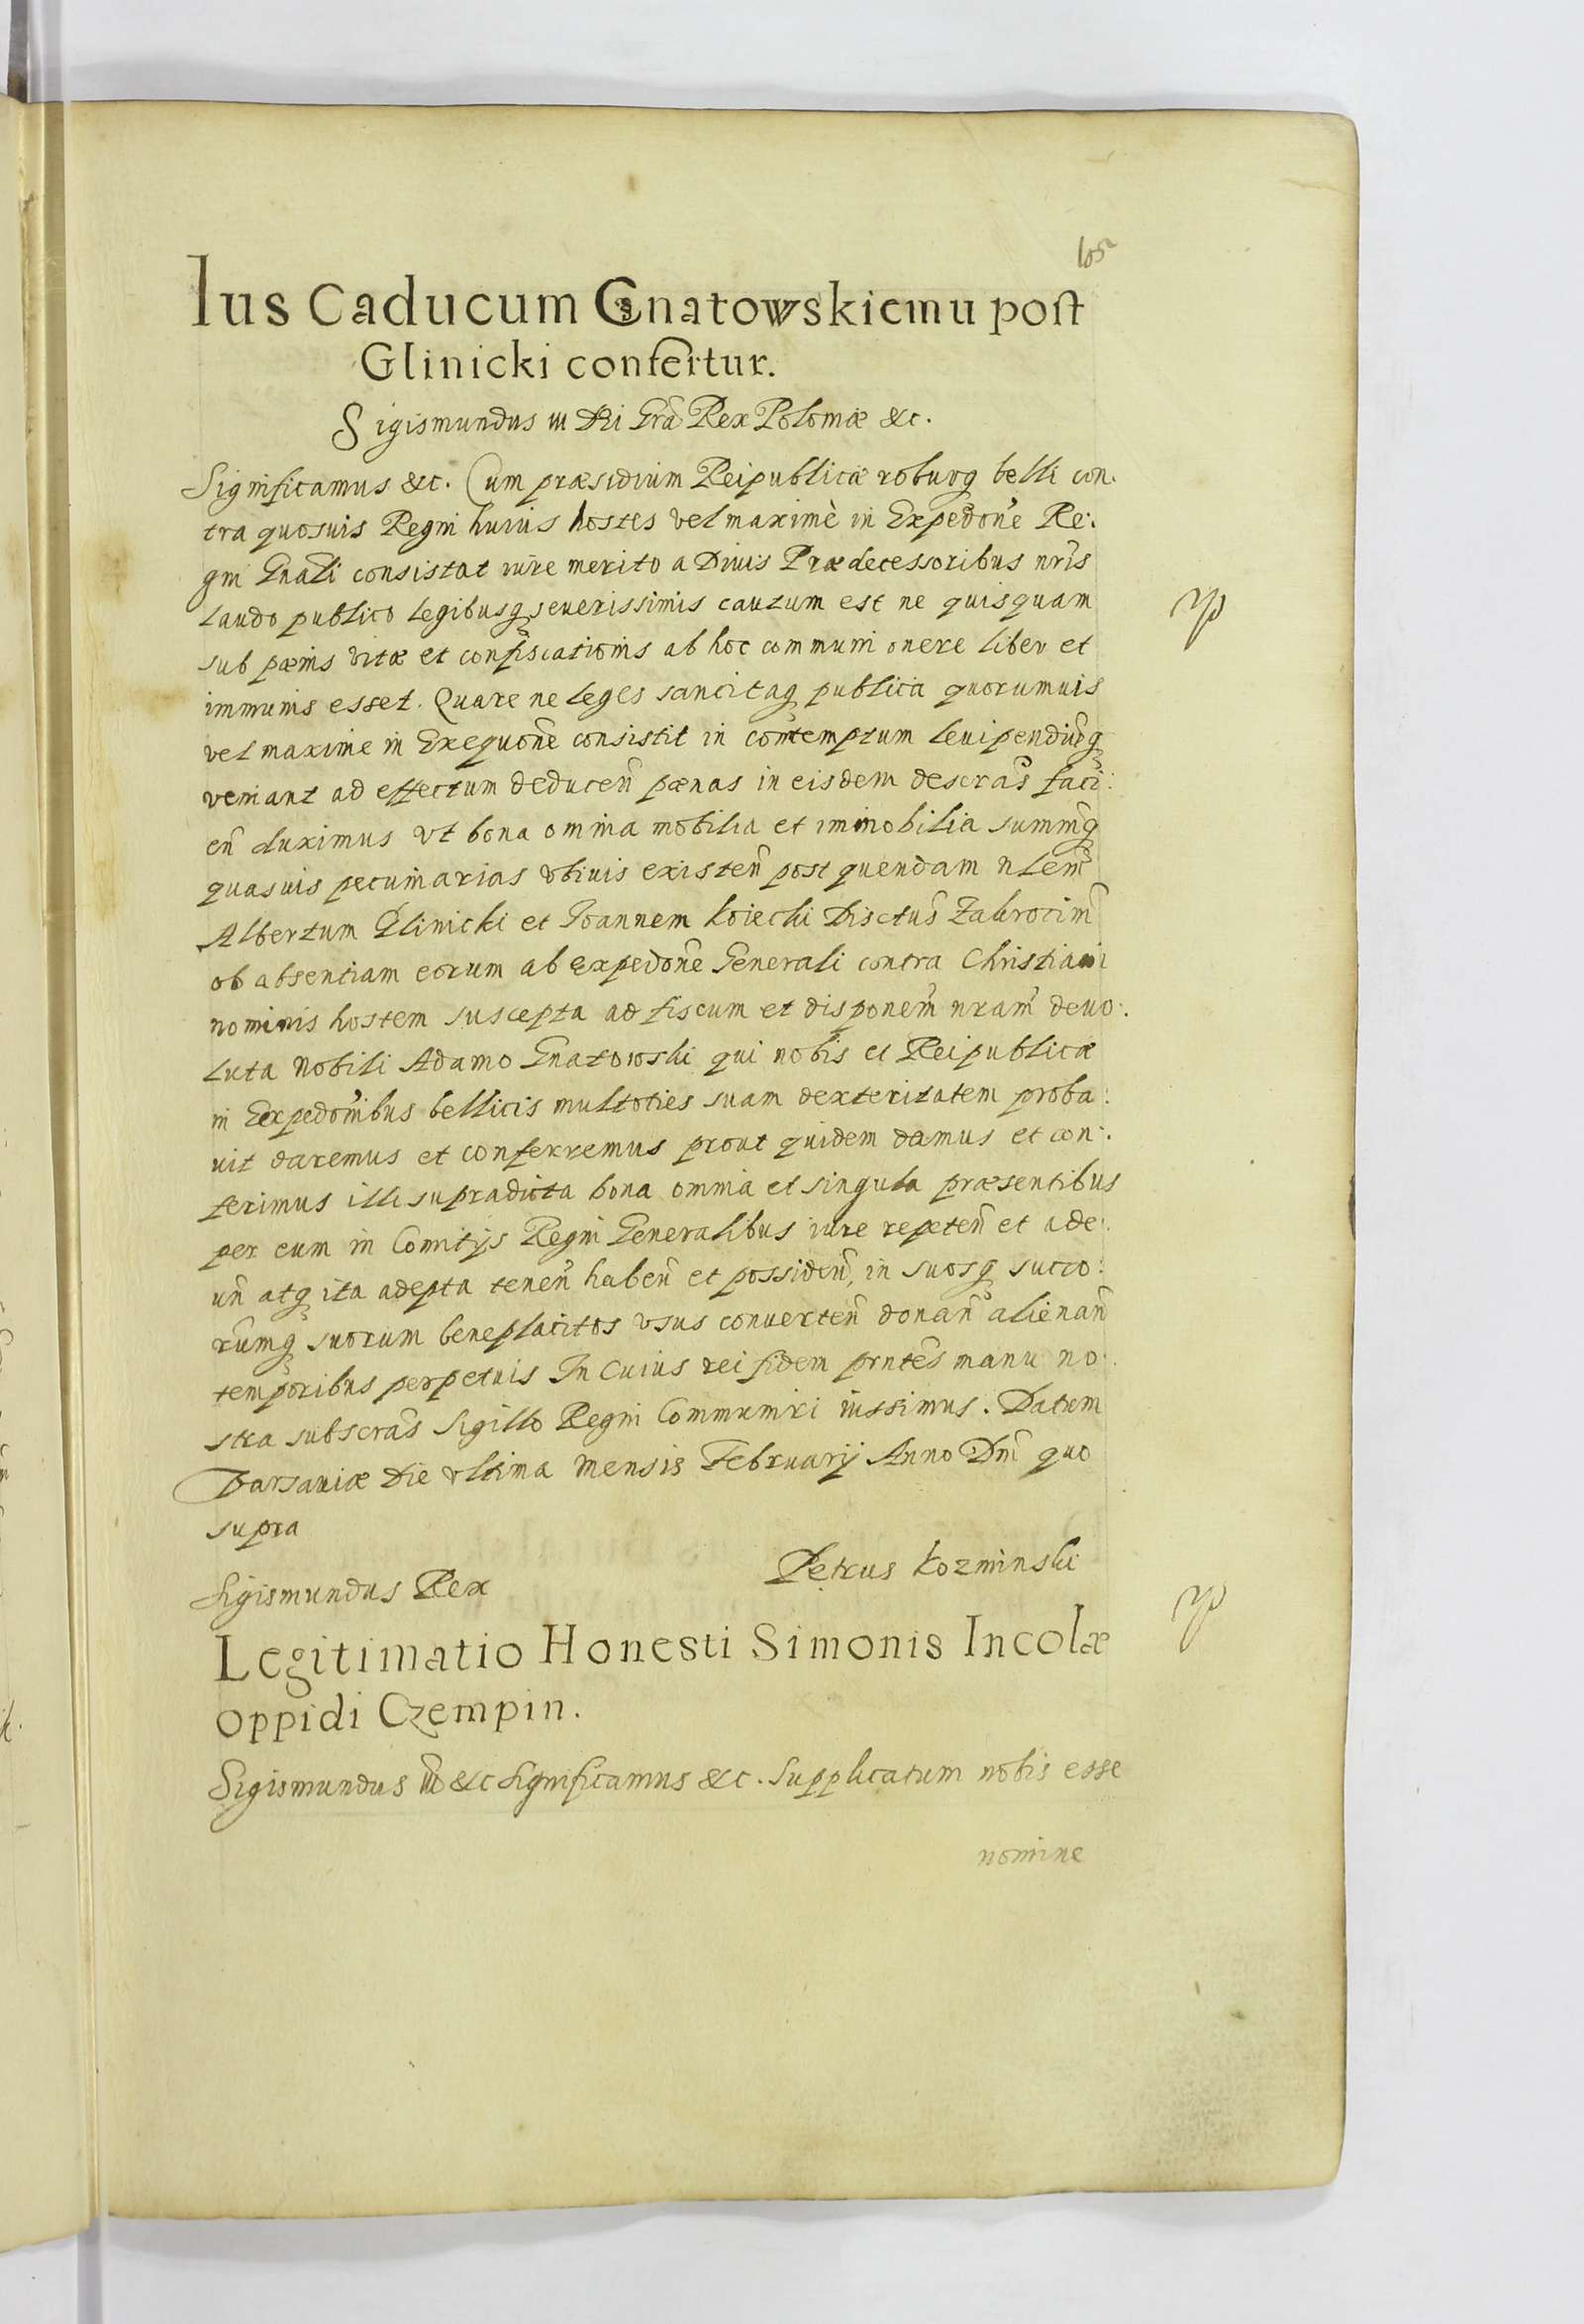 105
Ius Caducum Gnatowskiemu post
Glinicki confertur.
Sigismundus III Dei Grã Rex Poloniæ &c.
Significamus &c. Cum præsidium Reipublicæ roburq belli con.
tra quosuis Regni huius hostes vel maximè in Expedone Re:
gni Gnali consistat iure merito a Diuis Prædecessoribus nris
laudo publico legibusq seuerissimis cautum est ne quisquam
sub pænis vitæ et confiscationis ab hoc communi onere liber et
immunis esset. Quare ne leges sancitaq publica quorumuis
vel maxime in Exequone consistit in contemptum leuipendiuq
veniant ad effectum deducen pænas in eisdem descras faci:
en duximus vt bona omnia mobilia et immobilia summq
quasuis pecuniarias vbiuis existen post quendam nlem
Albertum Glinicki et Joannem Koiecki Disctus Zakrocim
ob absentiam eorum ab expedone Generali contra Christiani
nominis hostem suscepta ad fiscum et disponem nram deuo:
luta Nobili Adamo Gnatowski qui nobis et Reipublicæ
in Expedonibus bellicis multoties suam dexteritatem proba:
uit daremus et conferremus prout quidem damus et con:
ferimus illi supradicta bona omnia et singula præsentibus
per eum in Comitijs Regni Generalibus iure repeten et ade:
un atq ita adepta tenen haben et possiden, in suosq succo:
rumq suorum beneplacitos vsus conuerten donan alienan
temporibus perpetuis In Cuius rei fidem prntes manu no:
stra subscras Sigillo Regni Communiri iussimus. Datum
Varsauiæ Die vltima Mensis Februarij Anno Dni quo
supra
Sigismundus Rex
Petrus Kozminski
Legitimatio Honesti Simonis Incolæ
Oppidi Czempin.
Sigismundus III &c Significamus &c. Supplicatum nobis esse
nomine